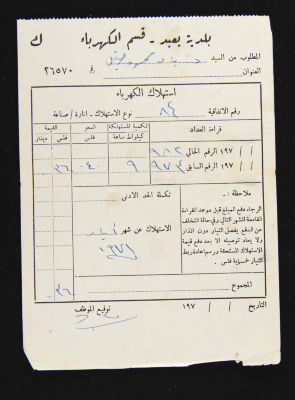 بلدية يعبد - قسم الكهرباء ك
المطلوب من السيد
العنوان رقم ٢٦٥٧٠
استهلاك الكهرباء
رقم الاتفاقية ٨٤ نوع الاستهلاك - انارة / صناعة
قراءة العداد الكمية المستهلكة السعر القيمة
كيلواط ساعة فلس فلس دينار
/ / ١٩٧ الرقم الحالي ٩٨٢
/ / ١٩٧ الرقم السابق ٩٧٣ ٩ ٤٠ ٣٦٠
ملاحظة : تكملة الحد الادنى
الرجاء دفع المبلغ قبل موعد القراءة
القادمة للشهر التالي وفي حالة التخلف
عن الدفع يفصل التيار دون انذار
ولا يعاد توصيله الا بعد دفع قيمة
الاستهلاك المستحقة ورسم اعادة ربط
التيار خمسماية فلس .
الاستهلاك عن شهر أيار
١٩٧٩
المجموع ٣٦٠
التاريخ / / ١٩٧ توقيع الموظف